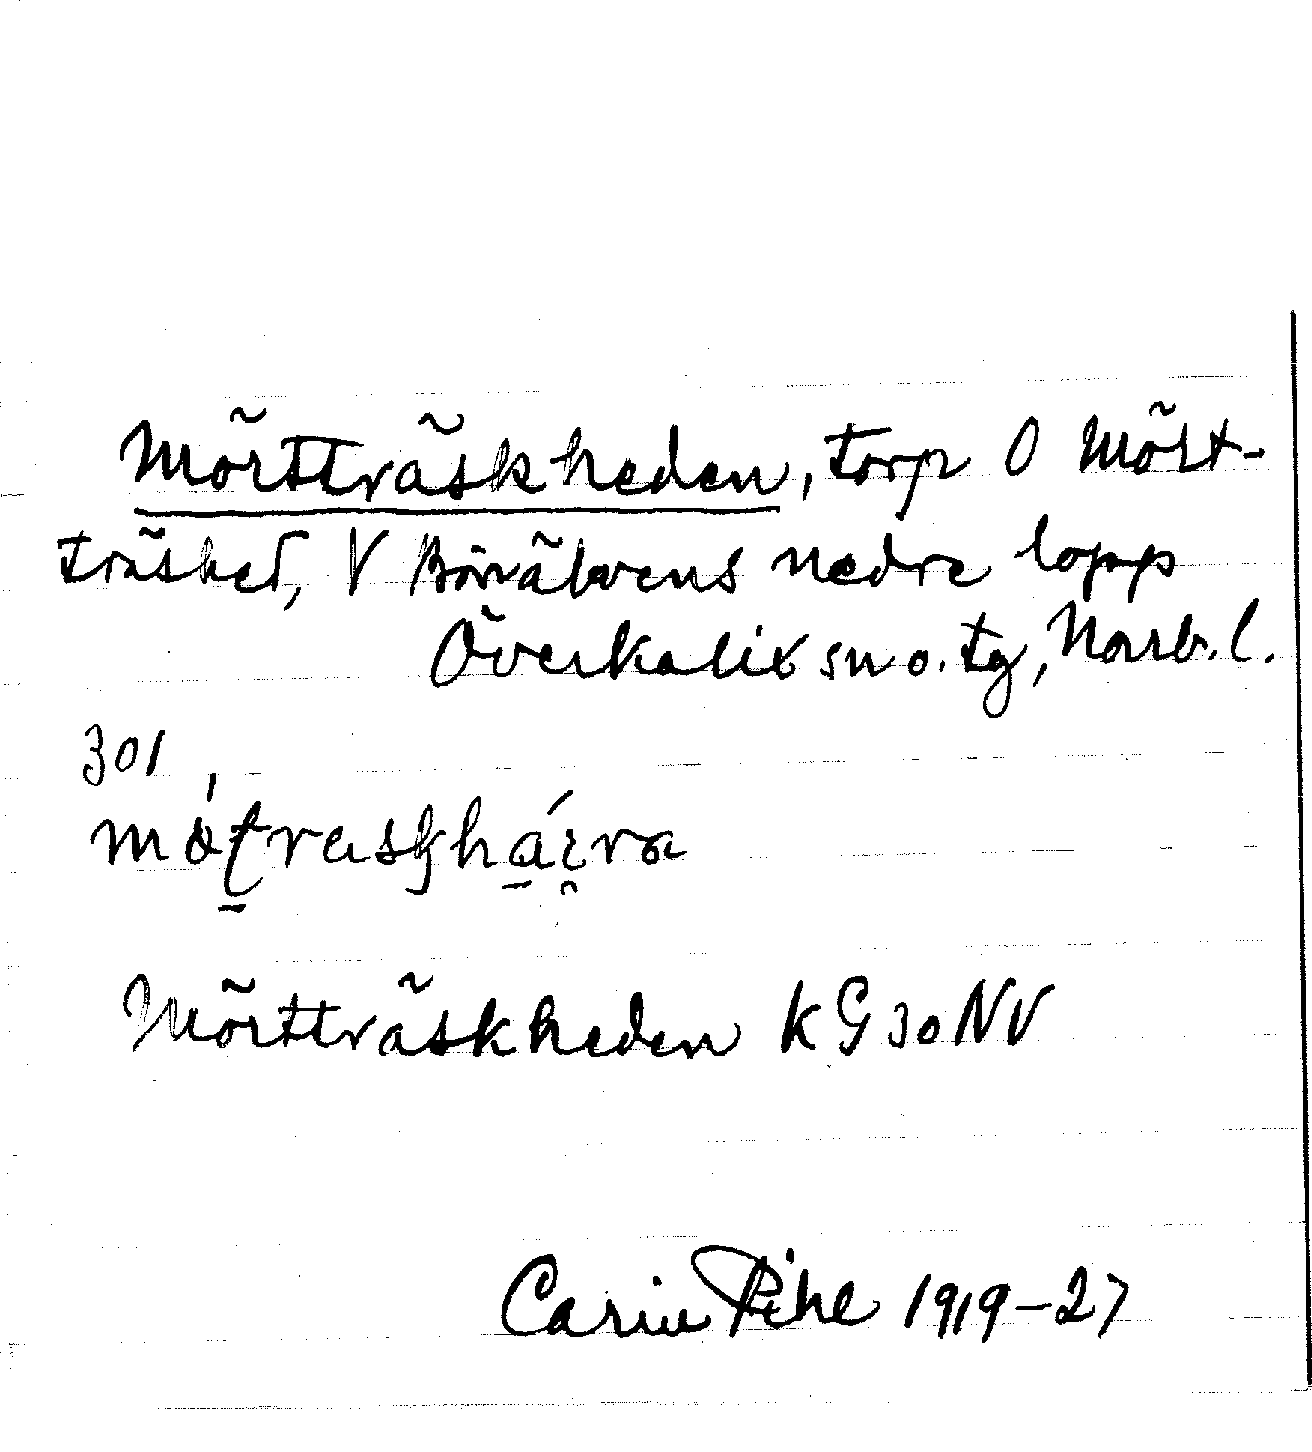 Mörtträskheden, torp O Mört-
träsket, V Börrälvens nedre lopp
Överkalix sn o. tg, Norrb. l.
301
Mörtträskheden KG 30 NV
Carin Pihl 1919-27